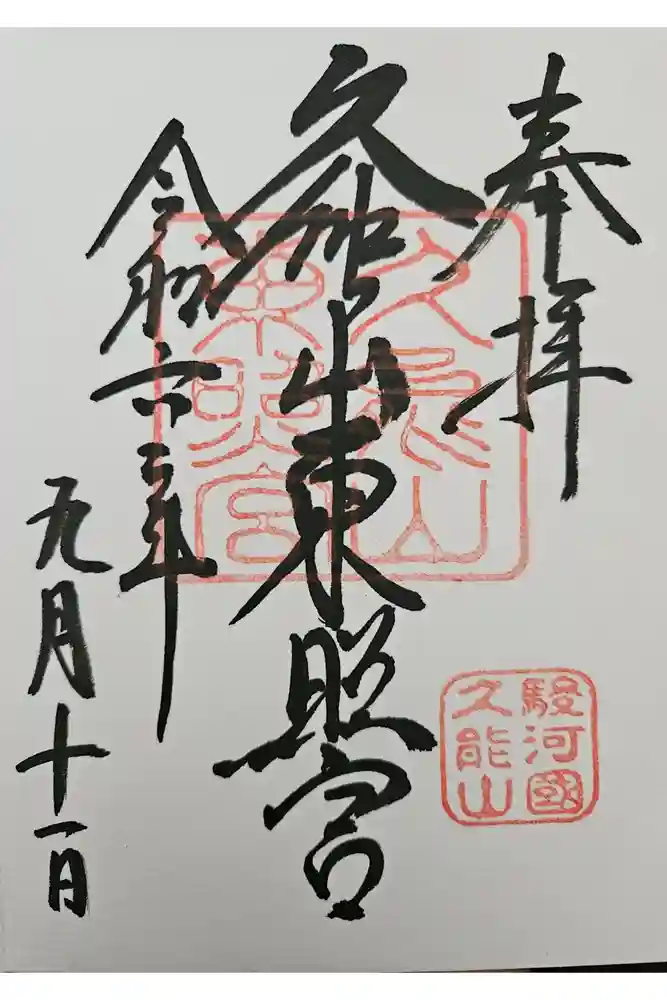 奉拝
久能山東照宮
令和六年
九月十一日
久能山
東照宮
駿河國
久能山